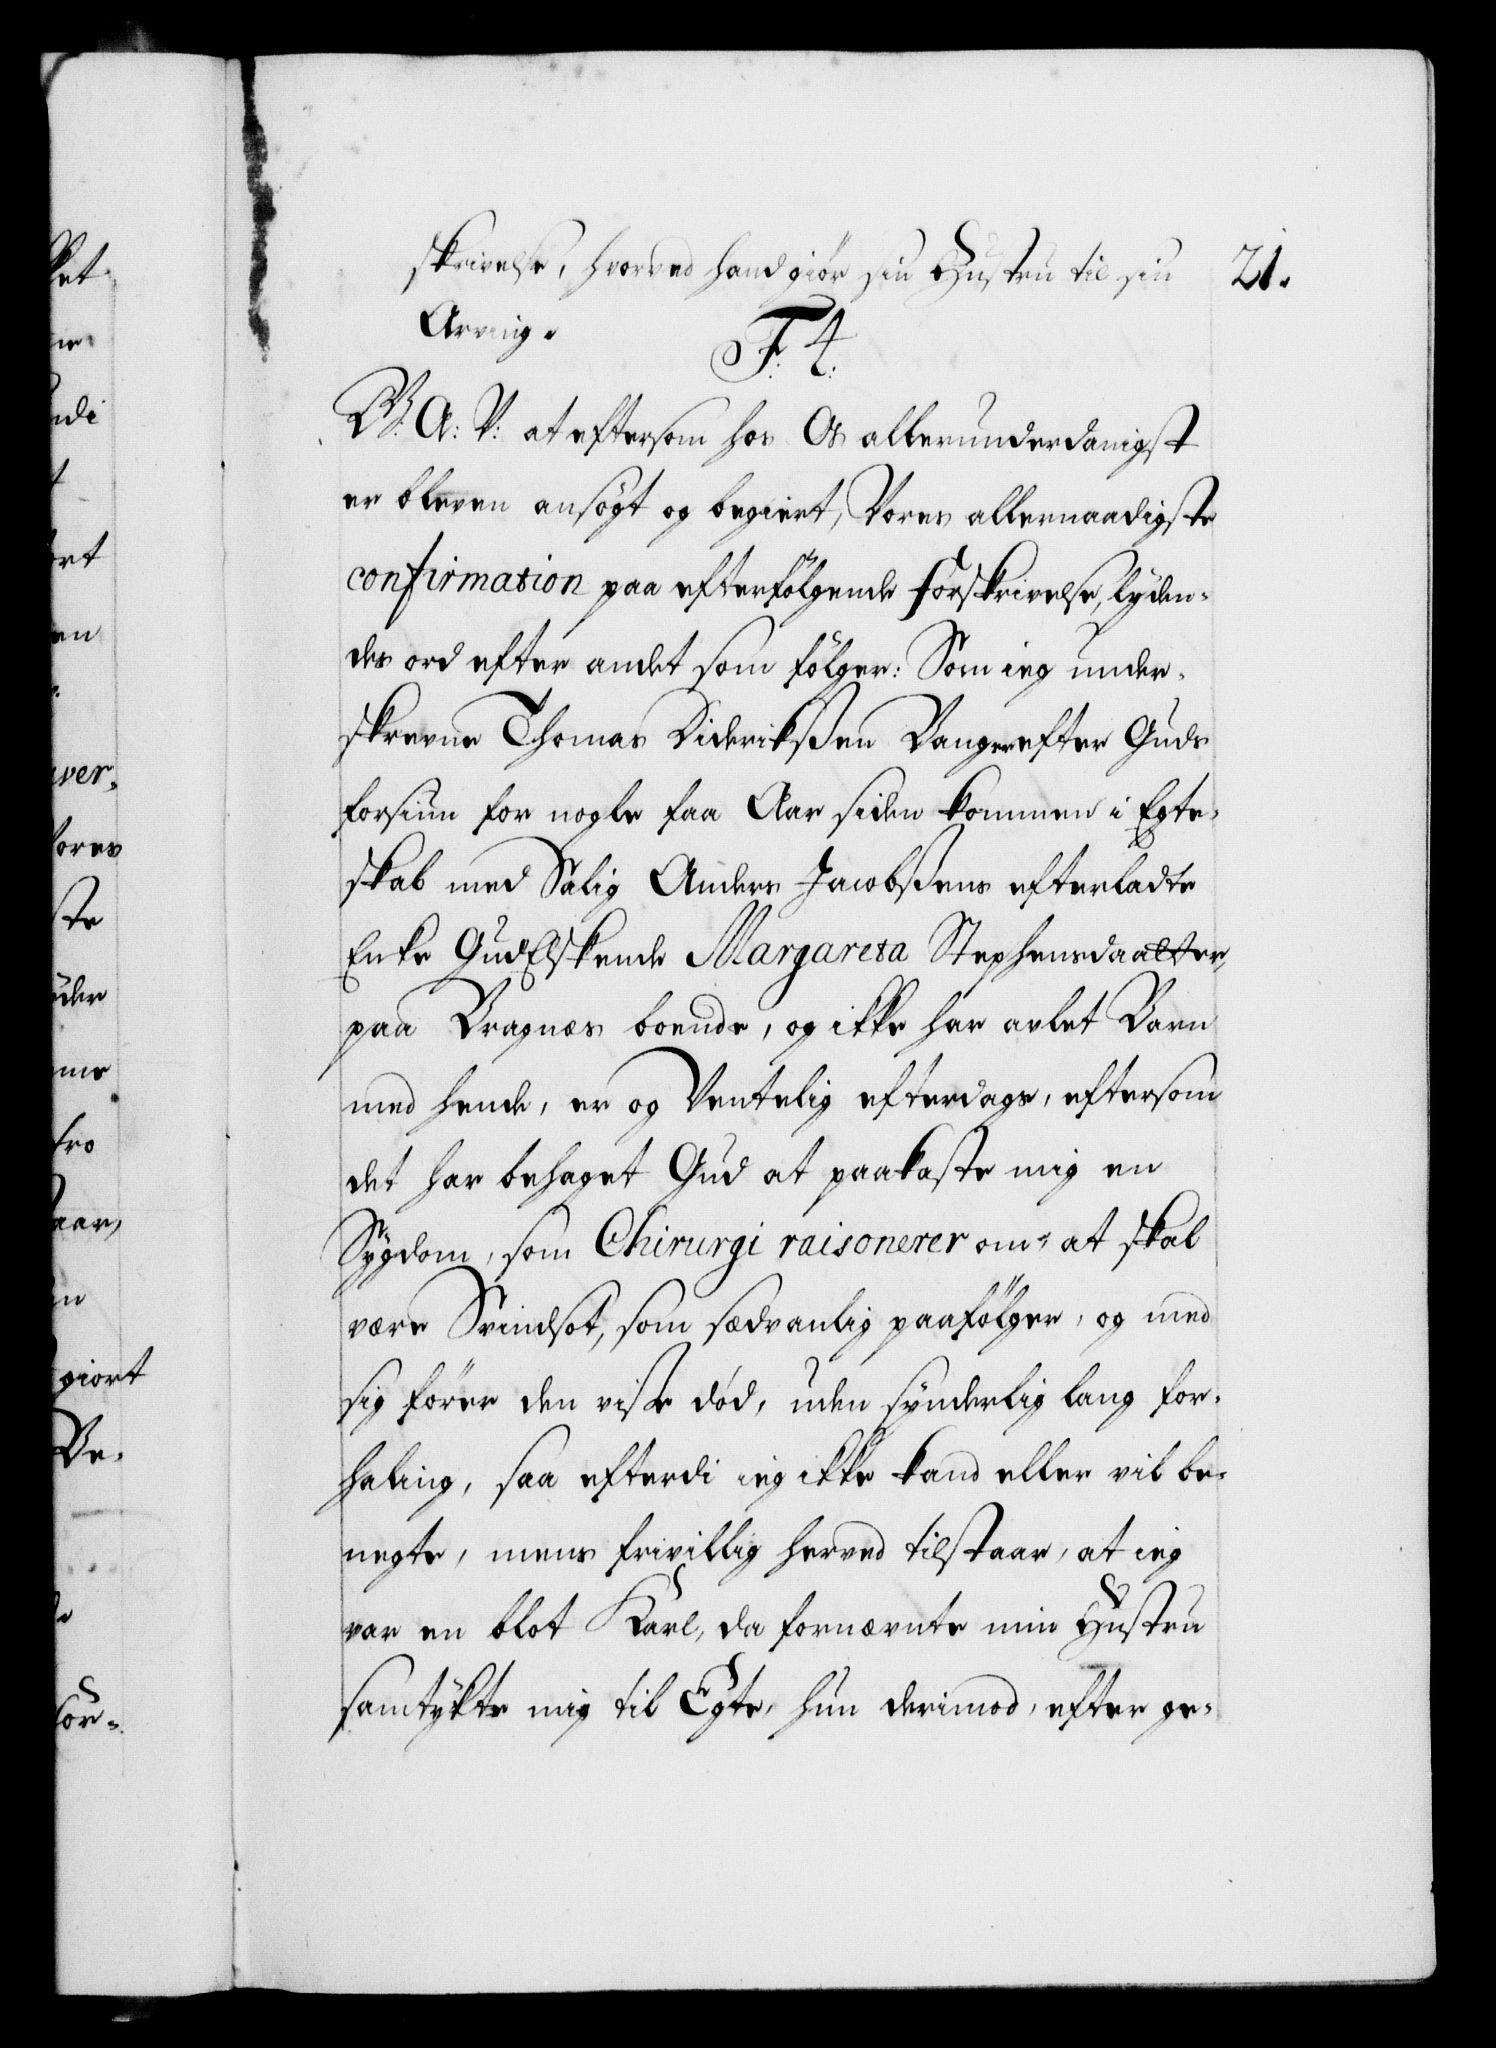 skrivelse, hvorved hand giör sin Hustru til sin 21.
Arving.
F. 4.
W. A: V: at eftersom hos Os allerunderdanigst
er bleven ansögt og begiert, Vores allernaadigste
confirmation paa efterfölgende forskrivelse, lyden-
des ord efter andet som fölger: Som ieg under-
skrevne Thomas Dideriksen Vanger efter Guds
forsiun for nogle faa Aar siden kommen i Egte-
skab med Salig Anders Jacobsens efterladte
Enke Gudelskende Margareta Stephensdaatter,
paa Bragnæs boende, og ikke har avlet Barn
med hende, er og Ventelig efterdags, eftersom
det har behaget Gud at paakaste mig en
Sygdom, som Chirurgi raisonerer om at skal
være Svindsot, som sædvanlig paafölger, og med
sig förer den visse död, uden synderlig lang for-
haling, saa efterdi ieg ikke kand eller vil be-
negte, mens frivillig herved tilstaar, at ieg
var en blot Karl, da fornævnte min Hustru
samtykte mig til Egte, hun derimod, efter ge-
ket
ndi
ert
en
ver-
Vores
ste
yder
fro
giort
Be-
for-